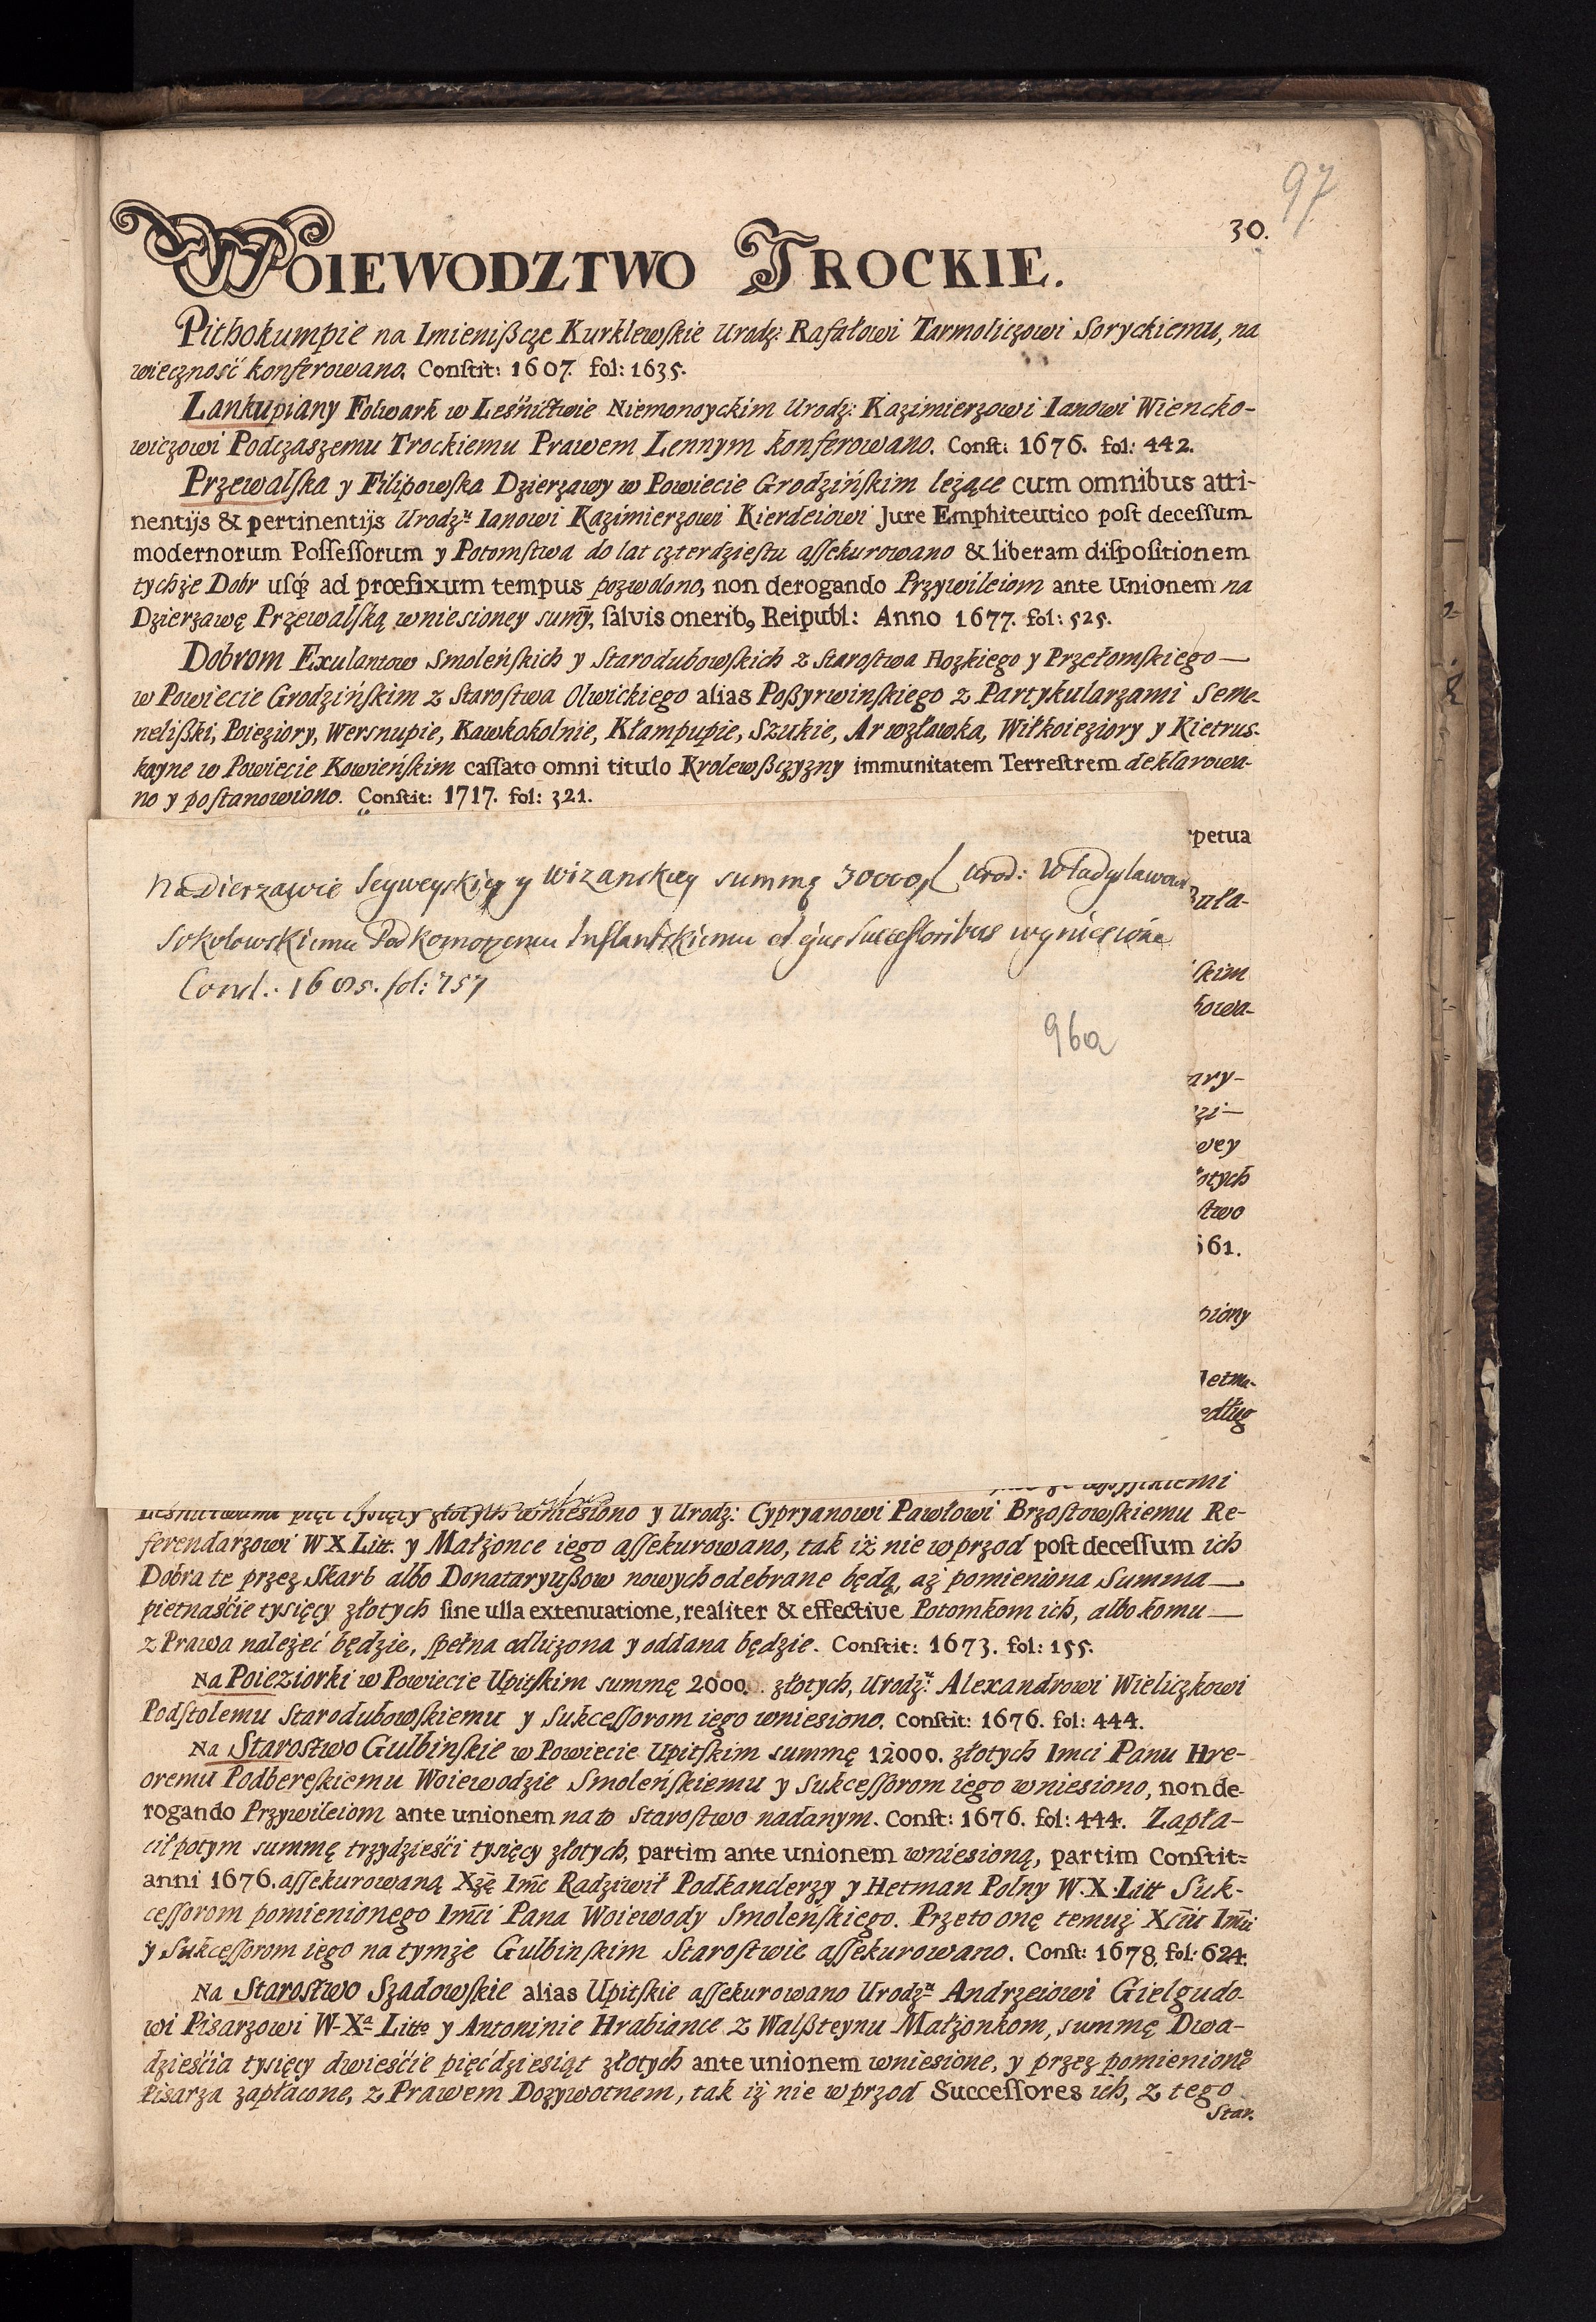 97
30.
WOIEWODZTWO TROCKIE.
Pithokumpie na Imienißcze Kurklewſkie Urodz: Rafałowi Tarmoliczowi Soryckiemu, na
wieczność konferowano. Conſtit: 1607. fol: 1635.
Lankupiany Folwark w Leśnictwie Niemonoyckim Urodz: Kazimierzowi Ianowi Wiencko-
wiczowi Podczaszemu Trockiemu Prawem Lennym konferowano. Conſt: 1676. fol: 442.
Przewalſka y Filipowſka Dzierzawy w Powiecie Grodzińſkim leżące cum omnibus atti-
nentijs & pertinentijs Urodz: Ianowi Kazimierzowi Kierdeiowi Jure Emphiteutico poſt deceſſum
modernorum Poſſeſſorum y Potomſtwa do lat czterdzieſtu aſſekurowano & liberam diſpoſitionem
tychże Dobr uſq́; ad præfixum tempus pozwolono, non derogando Przywileiom ante Unionem na
Dzierzawę Przewalſką wniesioney sum̄y, ſalvis onerib9 Reipubl: Anno 1677. fol: 525.
Dobrom Exulantow Smoleńſkich y Starodubowſkich z Staroſtwa Hozkiego y Przełomſkiego—
w Powiecie Grodzińſkim z Staroſtwa Olwickiego alias Poßyrwinſkiego z Partykularzami Seme-
nelißki, Poieziory, Wersnupie, Kawkokolnie, Kłampupie, Szukie, Arwzławka, Wiłkoieziory y Kietrus-
kayne w Powiecie Kowieńſkim caſſato omni titulo Krolewßczyzny immunitatem Terreſtrem deklarowa-
no y poſtanowiono. Conſtit: 1717. fol: 321.
rpetua
Na Dierzawie Seyweyskiey y Wizanskiey summę 30000 Urod: Władysławowi
Sokołowskiemu Podkomorzemu Inflantskiemu et ejus Successoribus wyniesione
Const: 1685. fol: 757
96a
uła-
ſkim
kowa-
ary-
zi—
wey
łotych
ſtwo
661.
piony
Hetma-
edług
Leśnictwami pięć tysięcy złotych wniesiono y Urodz: Cypryanowi Pawłowi Brzoſtowſkiemu Re-
ferendarzowi WXLitt. y Małżonce iego aſſekurowano, tak iż nie wprzod poſt deceſſum ich
Dobra te przez Skarb albo Donataryußow nowych odebrane będą, aż pomieniona Summa—
pietnaście tysięcy złotych ſine ulla extenuatione, realiter & effective Potomkom ich, albo komu—
z Prawa należeć będzie, ſpełna odliżona y oddana będzie. Conſtit: 1673. fol: 155.
Na Poieziorki w Powiecie Upitſkim summę 2000. złotych, Urodz: Alexandrowi Wieliczkowi
Podſtolemu Starodubowſkiemu y Sukceſſorom iego wniesiono. Conſtit: 1676. fol: 444.
Na Staroſtwo Gulbinſkie w Powiecie Upitſkim summę 12000. złotych Imci Panu Hre-
oremu Podbereſkiemu Woiewodzie Smoleńſkiemu y Sukceſſorom iego wniesiono, non de-
rogando Przywileiom ante unionem na to Staroſtwo nadanym. Conſt: 1676. fol: 444. Zapła-
cił potym summę trzydzieści tysięcy złotych, partim ante unionem wniesioną, partim Conſtit=
anni 1676. aſſekurowaną Xżę Im̄c Radziwił Podkanclerzy y Hetman Polny W.X.Litt Suk-
ceſſorom pomienionego Im̄ci Pana Woiewody Smoleńſkiego. Przeto onę temuż Xc̄iu Im̄ci
y Sukceſſorom iego na tymże Gulbinſkim Staroſtwie aſſekurowano. Conſt: 1678. fol: 624.
Na Staroſtwo Szadowſkie alias Upitſkie aſſekurowano Urodz: Andrzeiowi Gielgudo-
wi Pisarzowi W-Xa Litto y Antoninie Hrabiance z Walßteynu Małżonkom, summę Dwa-
dzieścia tysięcy dwieście pięćdziesiąt złotych ante unionem wniesione, y przez pomienione
Pisarza zapłacone, z Prawem Dożywotnem, tak iż nie wprzod Succeſſores ich, z tego
Star.